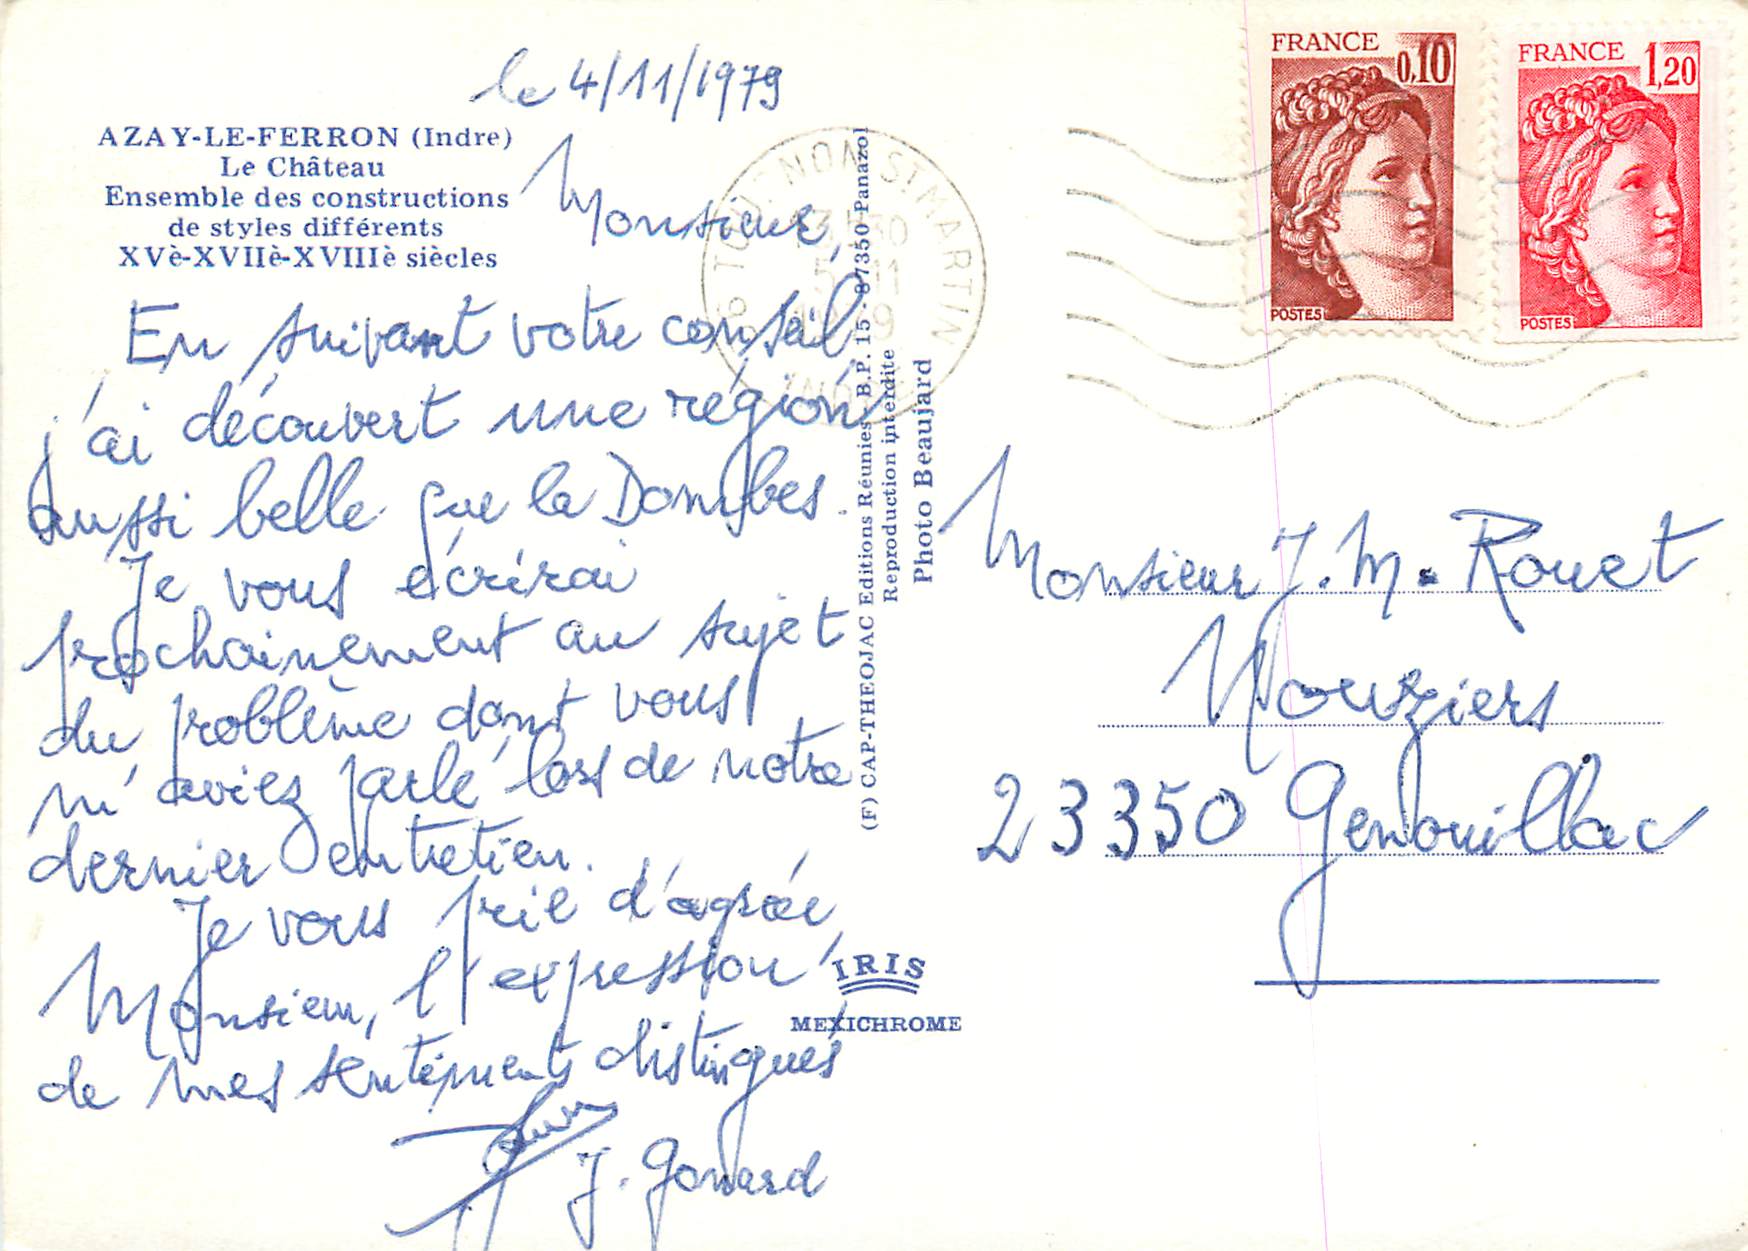 le 4/11/1979
AZAY-LE-FERRON (Indre)
Le Château
Ensemble des constructions
de styles différents
XVè-XVIIè-XVIIIè siècles
Monsieur,
En suivant votre conseil
j'ai découvert une région
aussi belle que la Dombes.
Je vous écrirai
prochainement au sujet
du problème dont vous
m'aviez parlé lors de notre
dernier entretien.
Je vous prie d'agréer
Monsieur, l'expression
de mes sentiments distingués
J. Gonard
(F) CAP-THEOJAC Editions Réunies B.P. 15 - 87350 Panazol
Reproduction interdite
Photo Beaujard
IRIS
MEXICHROME
NON ST MARTIN
5 - 11
FRANCE
0,10
POSTES
FRANCE
1,20
POSTES
Monsieur J. M. Rouet
Nouziers
23350 Genouillac